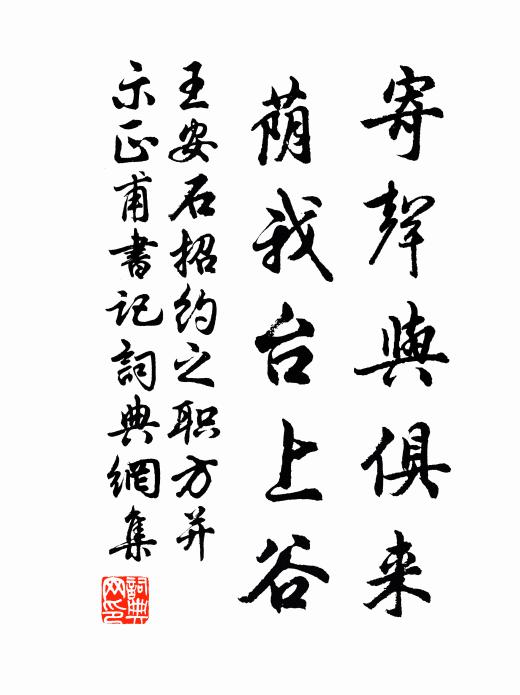 寄聲與俱来
荫我台上谷
王安石招约之职方并
示正甫書记詞典網集
詞典網印